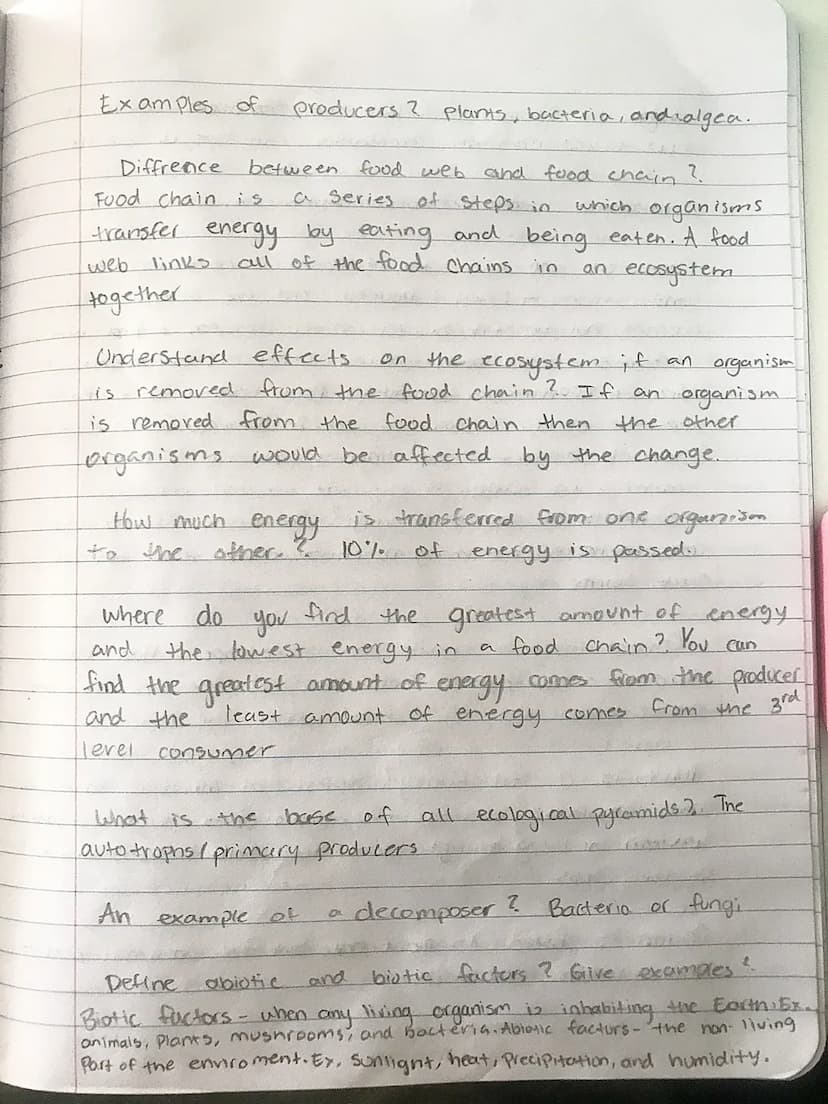 Examples of producers? plants, bacteria, and algea.
Diffrence between food web and food chain?
Food chain is a series of steps in which organisms
transfer energy by eating and being eaten. A food
web links all of the food chains in an ecosystem
together
Understand effects on the ecosystem if an organism
is removed from the food chain? If an organism
is removed from the food chain then the other
organisms would be affected by the change.
How much energy is transferred from one organism
to the other? 10% of energy is passed.
Where do you find the greatest amount of energy
and the lowest energy in a food chain? You can
find the greatest amount of energy comes from the producer
and the least amount of energy comes from the 3rd
level consumer
What is the base of all ecological pyramids? The
autotrophs/primary producers
An example of a decomposer? Bacteria or fungi
Define abiotic and biotic factors? Give examples?
Biotic factors - when any living organism is inhabiting the Earth. Ex.
animals, plants, mushrooms, and bacteria. Abiotic factors - the non-living
Part of the enviroment. Ex, sunlight, heat, precipitation, and humidity.